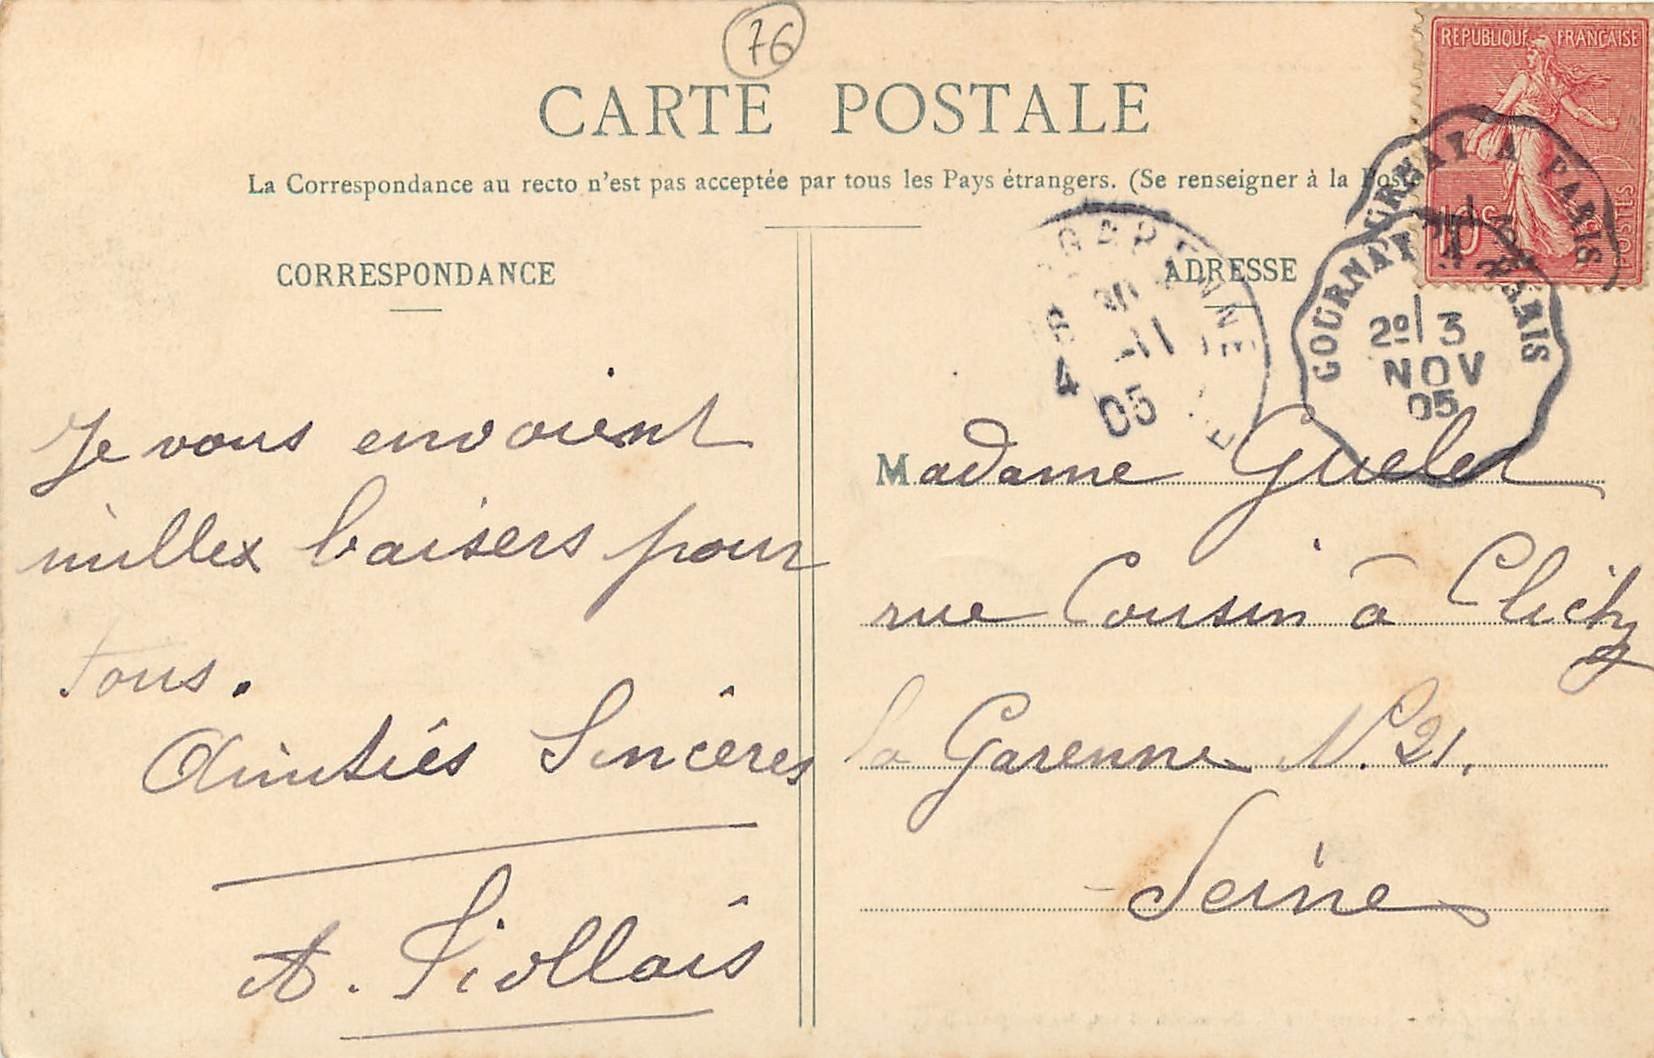 76
CARTE POSTALE
RÉPUBLIQUE FRANÇAISE
10c
POSTES
La Correspondance au recto n'est pas acceptée par tous les Pays étrangers. (Se renseigner à la Poste
CORRESPONDANCE
ADRESSE
GOURNAY A PARIS
GOURNAY A PARIS
2º 3
NOV
05
GARENNE
30
4 -11
05
Je vous envoient
milles baisers pour
tous.
Amitiés Sincêres
A.
Madame
rue Cousin à Clichy
la Garenne N. 21.
Seine